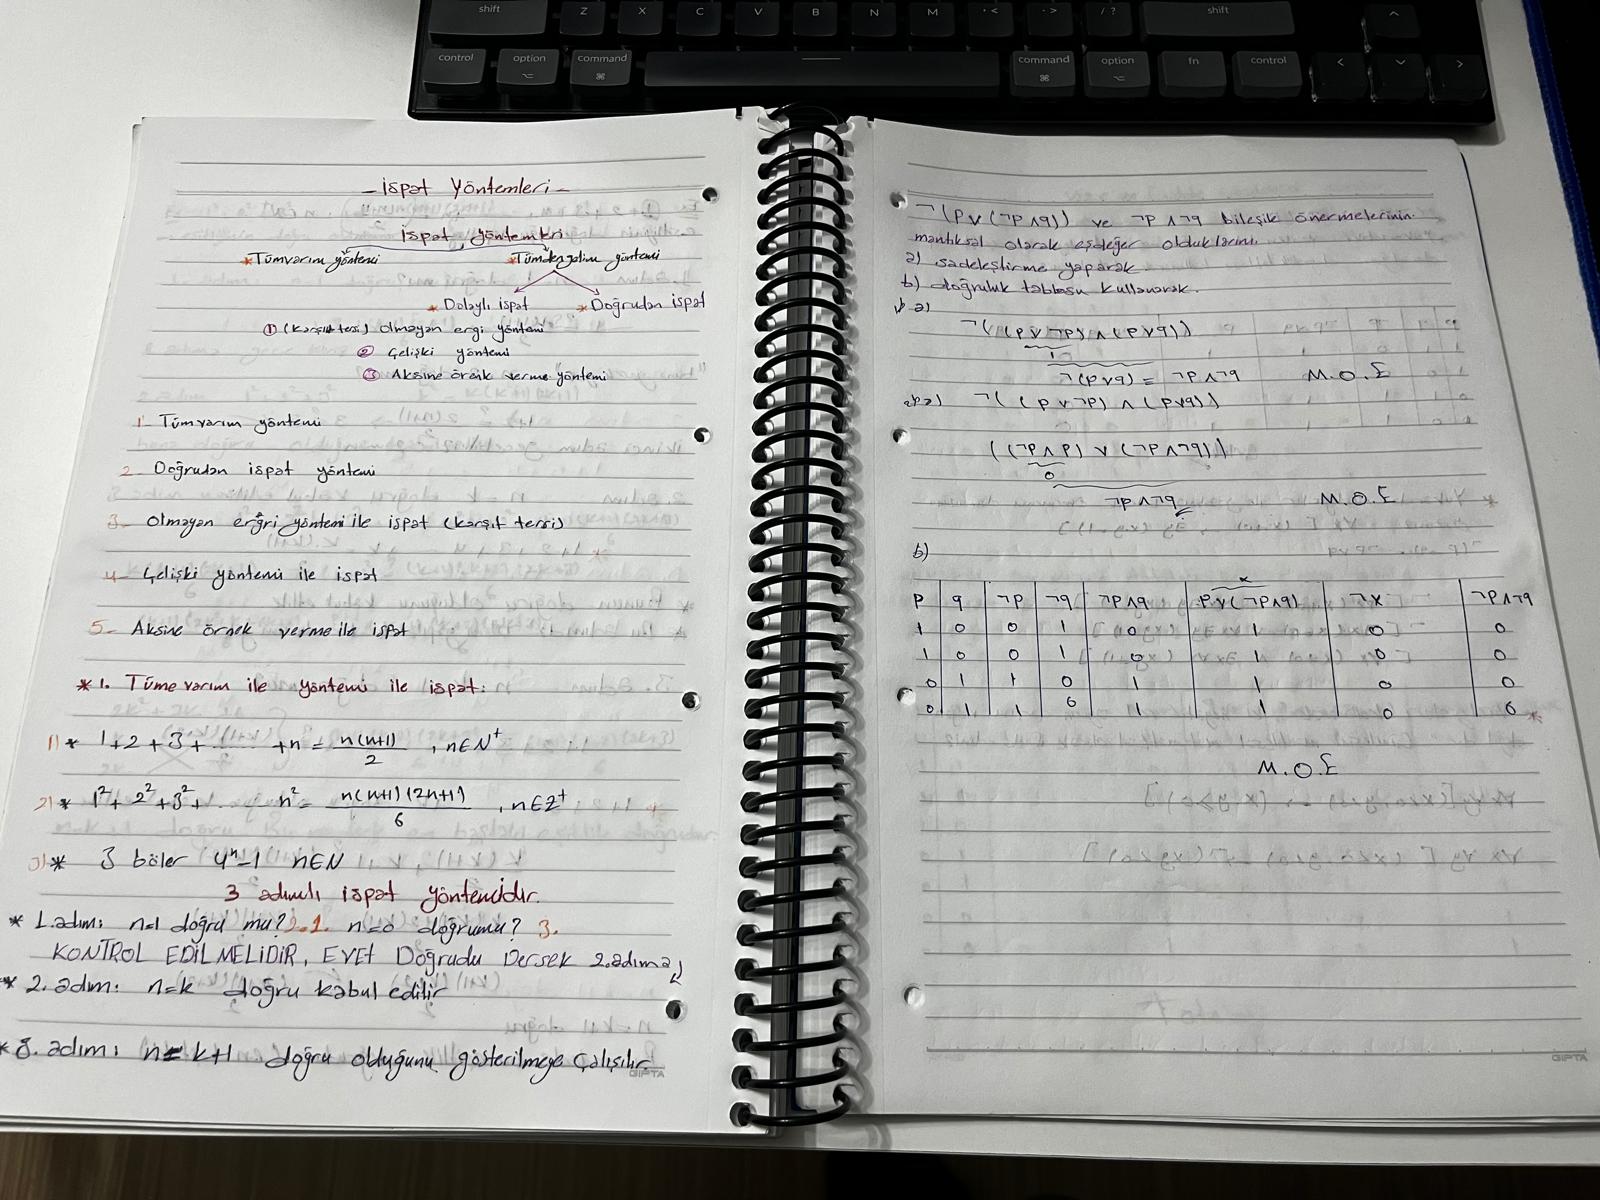 shift Z X C V B N M . < . > / ? shift ^
control option command ⌘ command ⌘ option fn control < >
- İspat Yöntemleri -
İspat yöntemleri
* Tümvarım yöntemi * Tümdengelim yöntemi
* Dolaylı ispat * Doğrudan ispat
① (Karşıt tersi) Olmayan ergi yöntemi
② Çelişki yöntemi
③ Aksine örnek verme yöntemi
1- Tümvarım yöntemi
2- Doğrudan ispat yöntemi
3- Olmayan erğri yöntemi ile ispat (karşıt tersi)
4- Çelişki yöntemi ile ispat
5- Aksine örnek verme ile ispat
* 1. Tüme varım ile yöntemi ile ispat:
1) * 1+2+3+ ...... +n = n(n+1)/2 , n∈N⁺
2) * 1²+2²+3²+ ...... n² = n(n+1)(2n+1)/6 , n∈Z⁺
3) * 3 böler 4ⁿ-1 n∈N
3 adımlı ispat yöntemidir.
* 1.adım: n=1 doğru mu? 2.1. n=0 doğrumu? 3.
KONTROL EDİLMELİDİR, EVET Doğrudu Dersek 2.adıma
* 2. adım: n=k doğru kabul edilir
* 3. adım: n=k+1 doğru olduğunu gösterilmeye çalışılır.
GIPTA
¬(p∨(¬p∧q)) ve ¬p∧¬q bileşik önermelerinin
mantıksal olarak eşdeğer olduklarını
a) sadeleştirme yaparak
b) doğruluk tablosu kullanarak.
a)
¬((p∨¬p)∧(p∨q))
1
¬(p∨q) = ¬p∧¬q M.O.E
¬((p∨¬p)∧(p∨q))
((¬p∧p)∨(¬p∧¬q))
0
¬p∧¬q M.O.E
b)
x
p q ¬p ¬q ¬p∧q p∨(¬p∧q) ¬x ¬p∧¬q
1 0 0 1 0 1 0 0
1 0 0 1 0 1 0 0
0 1 1 0 1 1 0 0
0 1 1 0 1 1 0 0
M.O.E
GIPTA